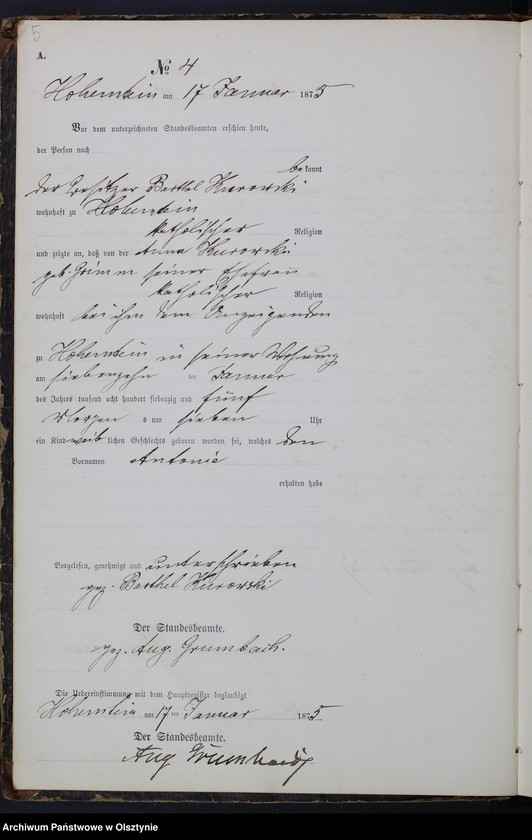 5
A.
No 4
Hohenstein am 17 Januar 1875
Vor dem unterzeichneten Standesbeamten erschien heute,
der Person nach
bekannt
der Besitzer Barthel Kurowski
wohnhaft zu Hohenstein
katholischer Religion
und zeigte an, daß von der Anna Kurowski
geb. Grimm seiner Ehefrau
katholischer Religion
wohnhaft bei ihm dem Anzeigenden
zu Hohenstein in seiner Wohnung
am siebenzehn ten Januar
des Jahres tausend acht hundert siebenzig und fünf
Morgens um sieben Uhr
ein Kind weiblichen Geschlechts geboren worden sei, welches den
Vornamen Antonie
erhalten habe
Vorgelesen, genehmigt und unterschrieben
gez. Barthel Kurowski
Der Standesbeamte.
gez. Aug. Grumbach.
Die Uebereinstimmung mit dem Hauptregister beglaubigt
Hohenstein am 17 ten Januar 1875
Der Standesbeamte.
Aug Grumbach
Archiwum Państwowe w Olsztynie